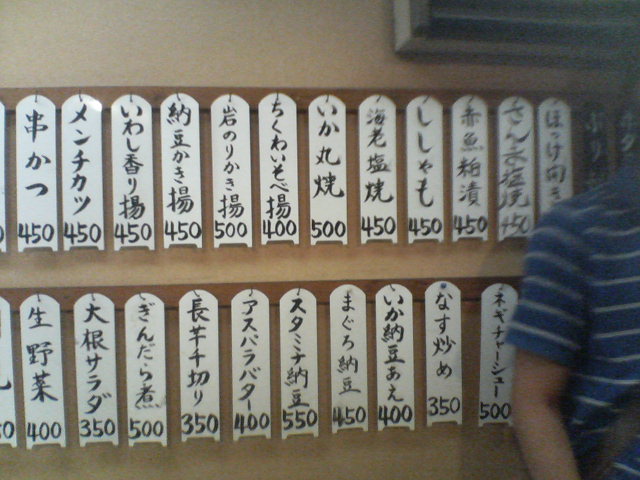 串かつ 450
メンチカツ 450
いわし香り揚 450
納豆かき揚 450
岩のりかき揚 500
ちくわいそべ揚 400
いか丸焼 500
海老塩焼 450
ししゃも 450
赤魚粕漬 450
さんま塩焼 450
ほっけ開き
生野菜 400
大根サラダ 350
ぎんだら煮 500
長芋千切り 350
アスパラバター 400
スタミナ納豆 550
まぐろ納豆 450
いか納豆あえ 400
なす炒め 350
ネギチャーシュー 500